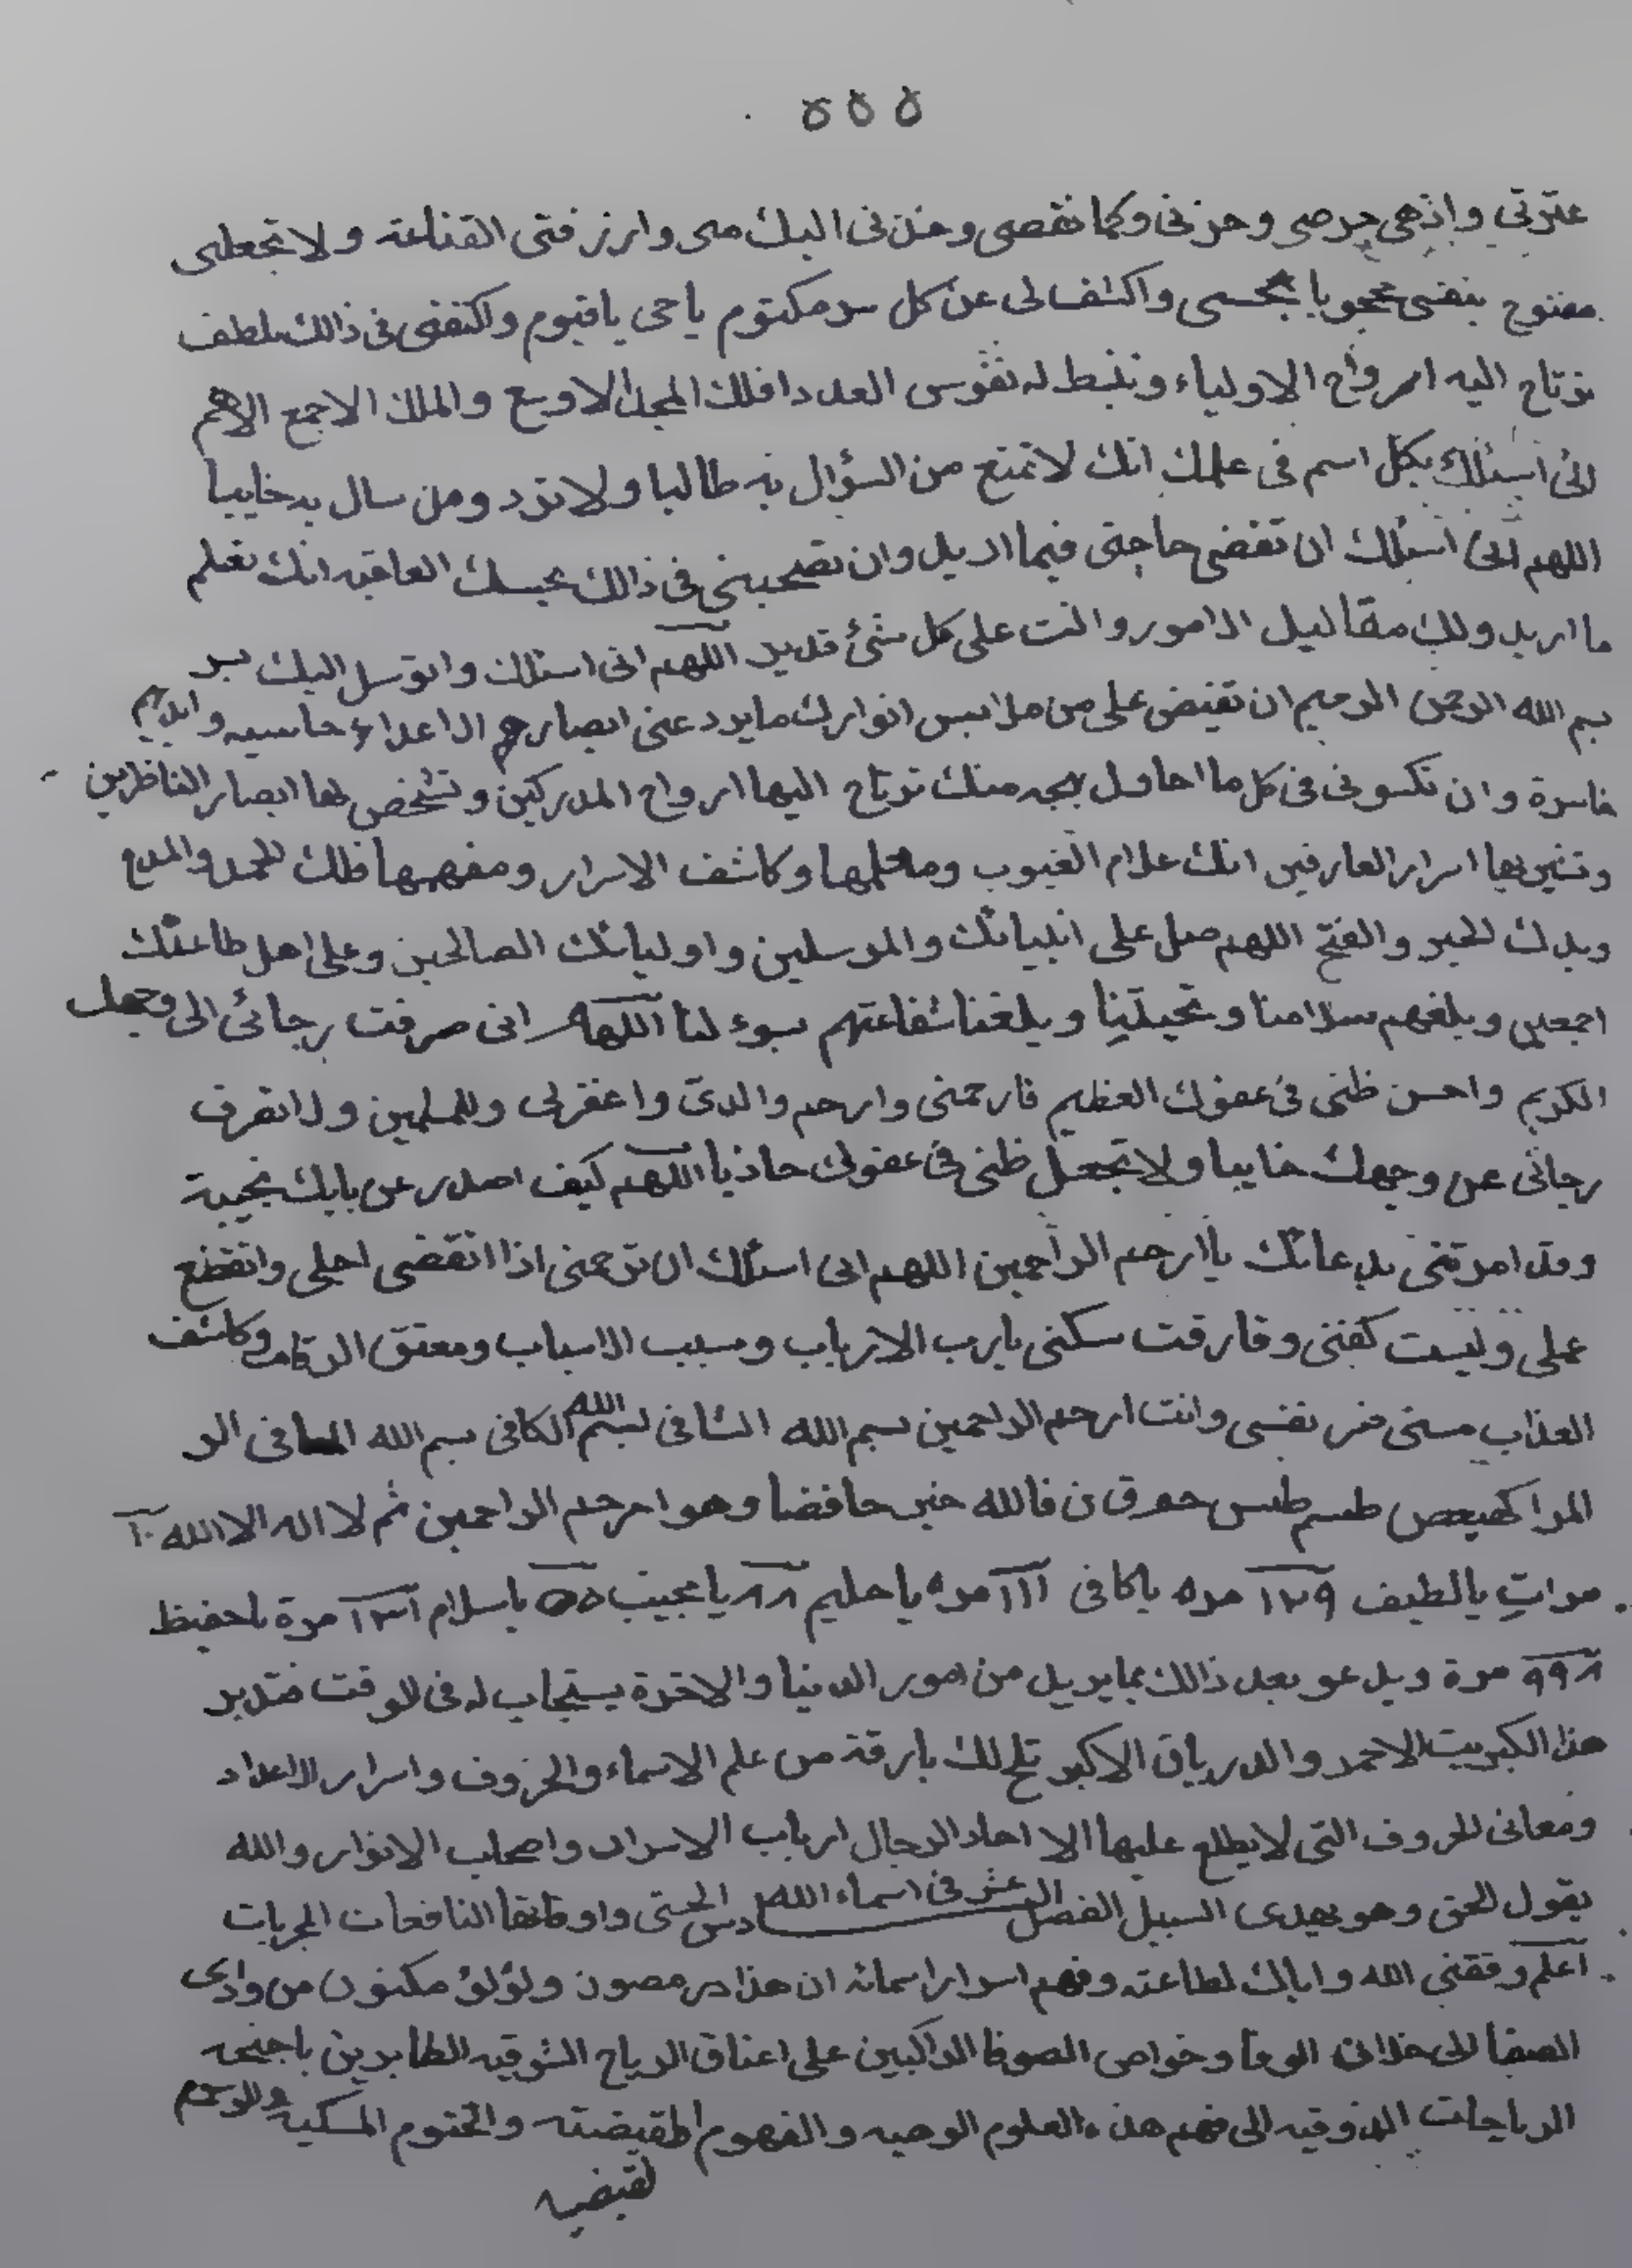 ٥٥٥
عترتي واذهى حرصى وحزنى وكما نقصى وخذنى اليك منى وارزقنى القناعة ولا تجعلنى
مفتوح بنفسى محجوبا بحسى واكشف لى عن كل سر مكتوم ياحى ياقيوم واكنفنى فى ذالك بلطف
ترتاح اليه ارواح الاولياء وتنبط له نفوس العدد افلك المجد الاوسع والملك الاجمع الاهم
انى اسئلك بكل اسم فى علمك انك لاتمنع من السؤال به طالبا ولا ترد ومن سال به خايبا
اللهم انى اسئلك ان تقضى حاجتى فيما اريد وان تصحبنى فى ذالك بحسك العاقبه انك تعلم
ما اريد ولك مقاليل الامور وانت على كل شئ قدير اللهم انى اسئلك واتوسل اليك بسر
بسم الله الرحمن الرحيم ان تفيض على من ملابس انوارك مايرد عنى ابصارهم الاعداء خاسيه وايديهم
خاسرة وان تكسونى فى كل ما احاول بهجه منك ترتاح اليها ارواح المدركين وتشخص لها ابصار الناظرين
وتنير بها اسرار العارفين انك علام الغيوب ومحلها وكاشف الاسرار ومفهمها فلك الحمد والمدح
وبدك الخير والفتح اللهم صل على انبيائك والمرسلين واوليائك الصالحين وعلى اهل طاعتك
اجمعين وبلغهم سلامنا وتحيتنا وبلغنا شفاعتهم بسوء لنا اللهم انى صرفت رجائى الى وجهك
الكريم واحسن ظنى فى عفوك العظيم فارحمنى وارحم والدى واغفرلى وللمسلمين ولا تصرف
رجائى عن وجهك خايبا ولا تجعل ظنى فى عفوك حاذبا اللهم كيف اصدر عن بابك بخيبة
وقد امرتنى بدعائك ياارحم الراحمين اللهم انى اسئلك ان ترحمنى اذا انقضى اجلى وانقطع
عملى ولبست كفنى وفارقت سكنى يارب الارباب ومسبب الاسباب ومعتق الرقاب وكاشف
العذاب مسنى ضر بنفسى وانت ارحم الراحمين بسم الله الشافى بسم الله الكافى بسم الله المعافى الر
المرا كهيعص طسم طس حم ق ن فالله خير حافضا وهو ارحم الراحمين ثم لا اله الا الله ١٠
مرات يالطيف ١٢٩ مره ياكافى ١١١ مره ياحليم ٨٨ يامجيب ٥٥ ياسلام ١٣١ مرة ياحفيظ
٩٩٨ مرة ويدعو بعد ذالك بما يريد من امور الدنيا والاخرة يستجاب له فى الوقت فتدبر
هذا الكبريت الاحمر والدرياق الاكبر تلح لك بارقة من علم الاسماء والحروف واسرار الاعداد
ومعانى الحروف التى لايطلع عليها الا احاد الرجال ارباب الاسرار واصحاب الانوار والله
يقول الحق وهو يهدى السبيل الفصل السادس عشر فى اسماء الله الحسنى واوفاقها النافعات المجربات
اعلم وفقنى الله واياك لطاعته وفهم اسرار اسمائه ان هذا در مصون ولؤلؤ مكنون من وادى
الصفا الى خلان الوفا وخواص الصوفا الراكبين على اعناق الرياح الشوقيه الطايرين باجنحه
الرياحات الذوقيه الى فهم هذه العلوم الوهبيه والفهوم المقيضته والختوم المسكيه والرسوم
لقبضيه